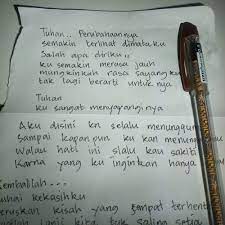 Tuhan... Perubahannya
semakin terlihat dimataku
Salah apa diriku
ku semakin merasa jauh
mungkinkah rasa sayangku
tak lagi berarti untuknya
Tuhan
ku sangat menyayanginya
Aku disini kn selalu menunggu
Sampai kapanpun ku kan menunggu
Walau hati ini slalu kau sakiti
Karna yang ku inginkan hanya
Kembalilah...
kekasihku
kisah yang sempat terhenti
kita tak saling setia